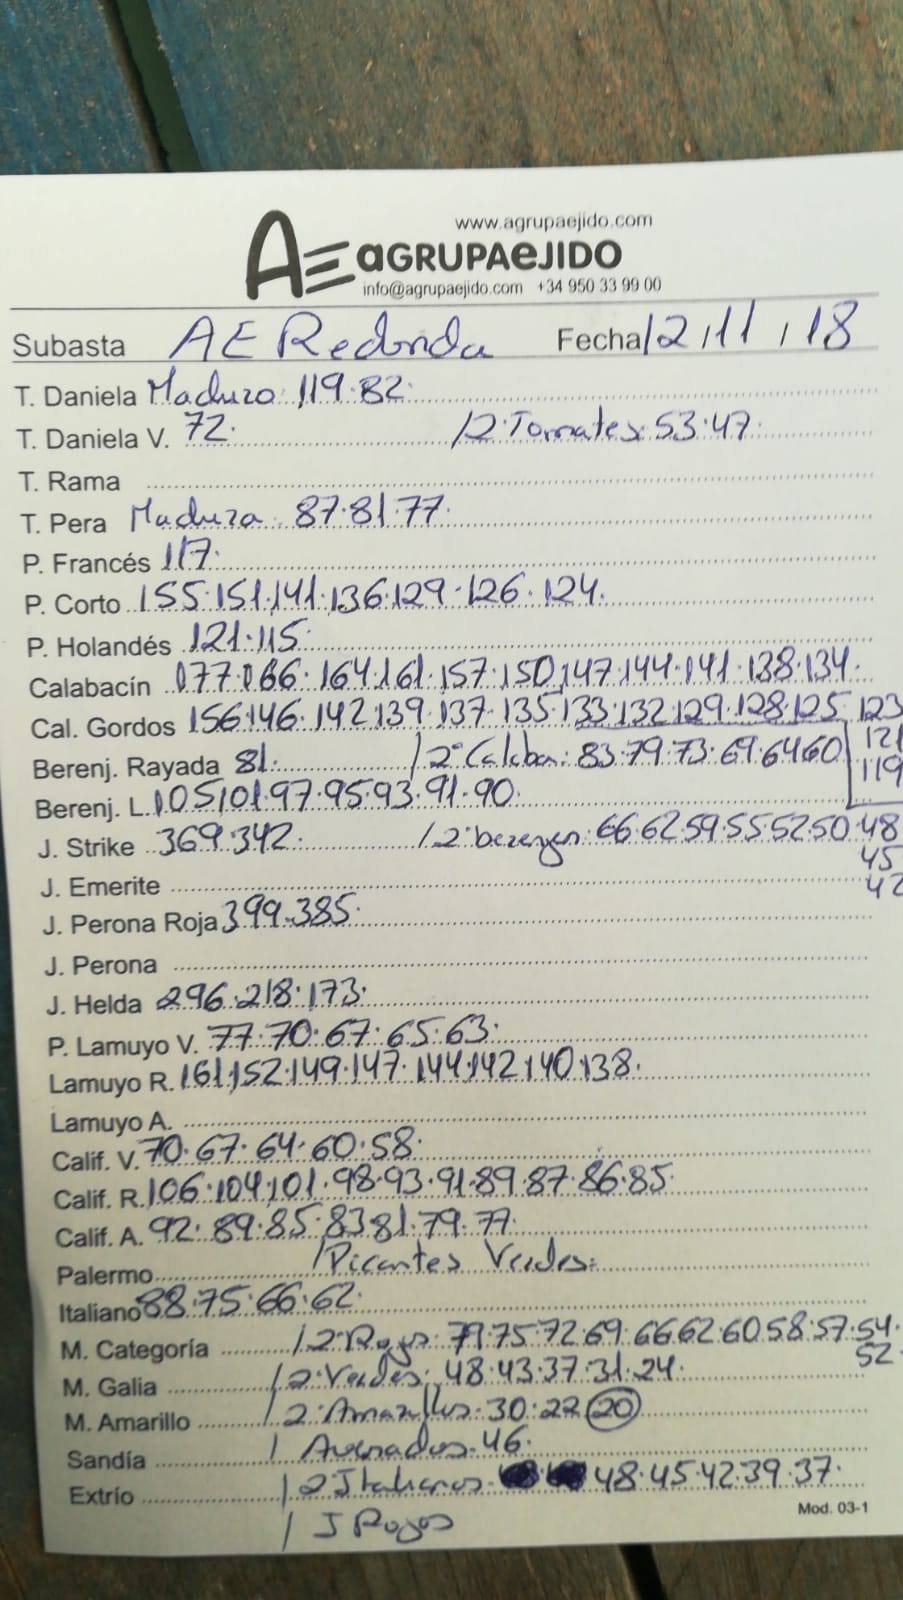 www.agrupaejido.com
AE AGRUPAEJIDO
info@agrupaejido.com +34 950 33 99 00
Subasta AE Redonda Fecha 12,11,18
T. Daniela Maduro 119.82.
T. Daniela V. 72. /2ª Tomates 53.47.
T. Rama
T. Pera Madura 87.81.77.
P. Francés 117.
P. Corto 155.151.141.136.129.126.124.
P. Holandés 121.115.
Calabacín 077.066.164.161.157.150.147.144.141.138.134.
Cal. Gordos 156.146.142.139.137.135.133.132.129.128.125.123
121
Berenj. Rayada 81. /2ª Calaba: 83.79.73.69.64.60
119
Berenj. L. 105.101.97.95.93.91.90.
J. Strike 369.342. /2ª berengen 66.62.59.55.52.50.48
45
J. Emerite
42
J. Perona Roja 399.385.
J. Perona
J. Helda 296.218.173.
P. Lamuyo V. 77.70.67.65.63.
Lamuyo R. 161.152.149.147.144.142.140.138.
Lamuyo A.
Calif. V. 70.67.64.60.58.
Calif. R. 106.104.101.98.93.91.89.87.86.85.
Calif. A. 92.89.85.83.81.79.77.
Palermo /Picantes Verdes:
Italiano 88.75.66.62.
M. Categoría /2ª Rojos: 79.75.72.69.66.62.60.58.57.54.
52.
M. Galia /2ª Verdes: 48.43.37.31.24.
M. Amarillo /2ª Amarillos. 30.22 20
Sandía / Asurados. 46.
Extrío /2 Italianos. 48.45.42.39.37.
Mod. 03-1
/ J Rojos